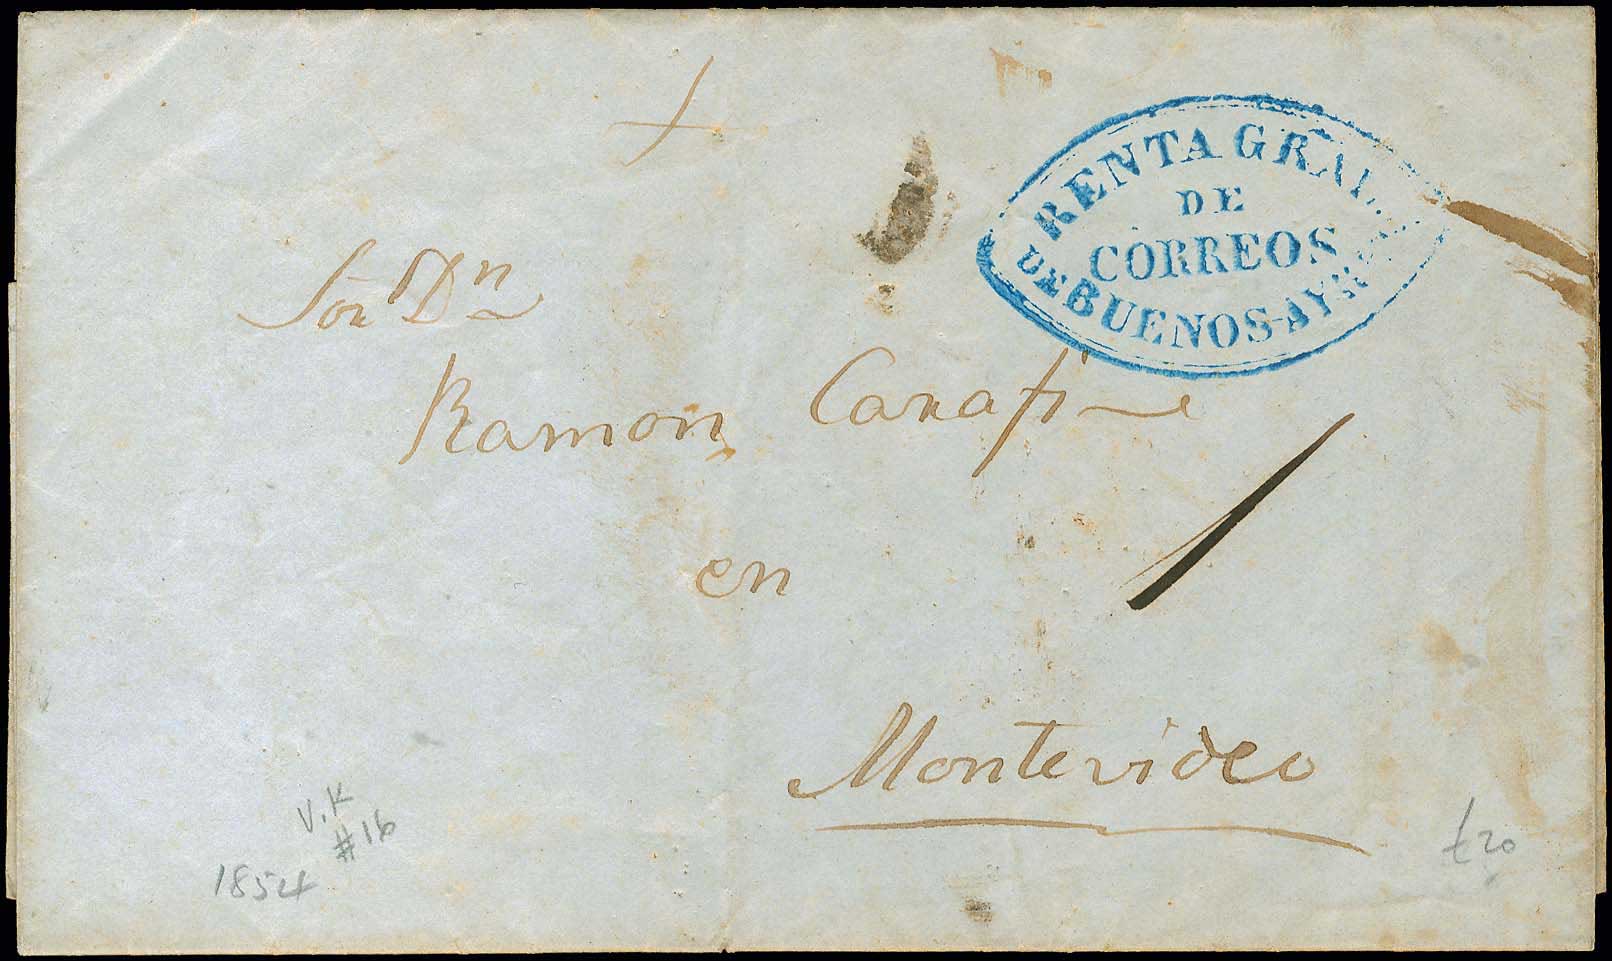 RENTA GRAL.
DE
CORREOS
DE BUENOS-AYRES
Sor Dn
Ramon Carafi
en
Montevideo
V.K
#16
1854
£20